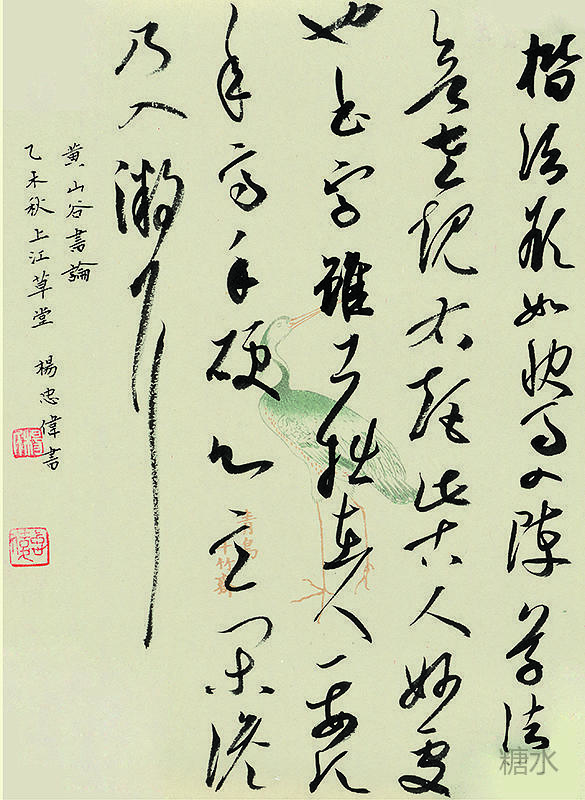 楷法欲如快馬入陣草法
欲左規右矩此古人妙處
也書字雖工拙在人要須
年高手硬心意閑澹
乃入微耳
黄山谷書論
乙未秋上江草堂 楊忠偉書
十竹齋
糖水